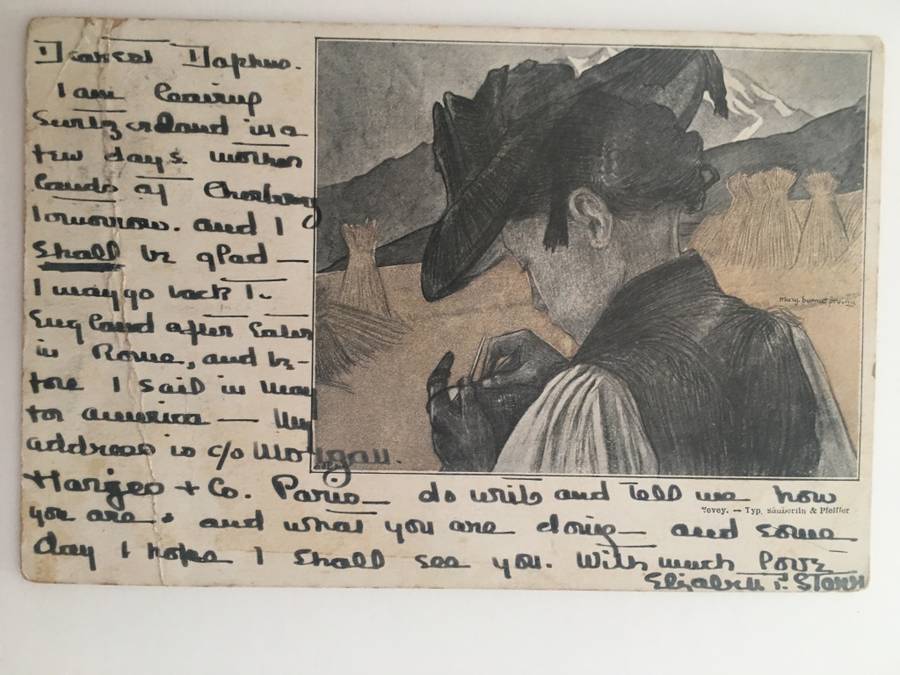 Dearest Daphne.
I am leaving
Switzerland in a
few days mother
lands at Cherbourg
tomorrow. and I
shall be glad —
I may go back to
England after Easter
in Rome, and be-
fore I sail in May
for America — My
address is c/o Morgan.
Harges + Co. Paris — do write and tell me how
you are, and what you are doing — and some
day I hope I shall see you. With much love
Elizabeth P. Starr
Vevey. — Typ. Säuberlin & Pfeiffer